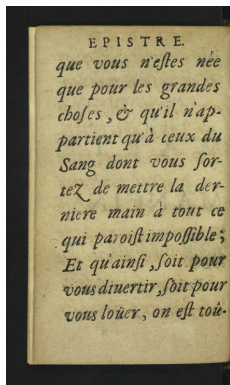 EPISTRE.
que vous n'eſtes née
que pour les grandes
choſes, & qu'il n'ap-
partient qu'à ceux du
Sang dont vous ſor-
tez de mettre la der-
niere main à tout ce
qui paroiſt impoſſible;
Et qu'ainſi, ſoit pour
vous diuertir, ſoit pour
vous loüer, on eſt toû-